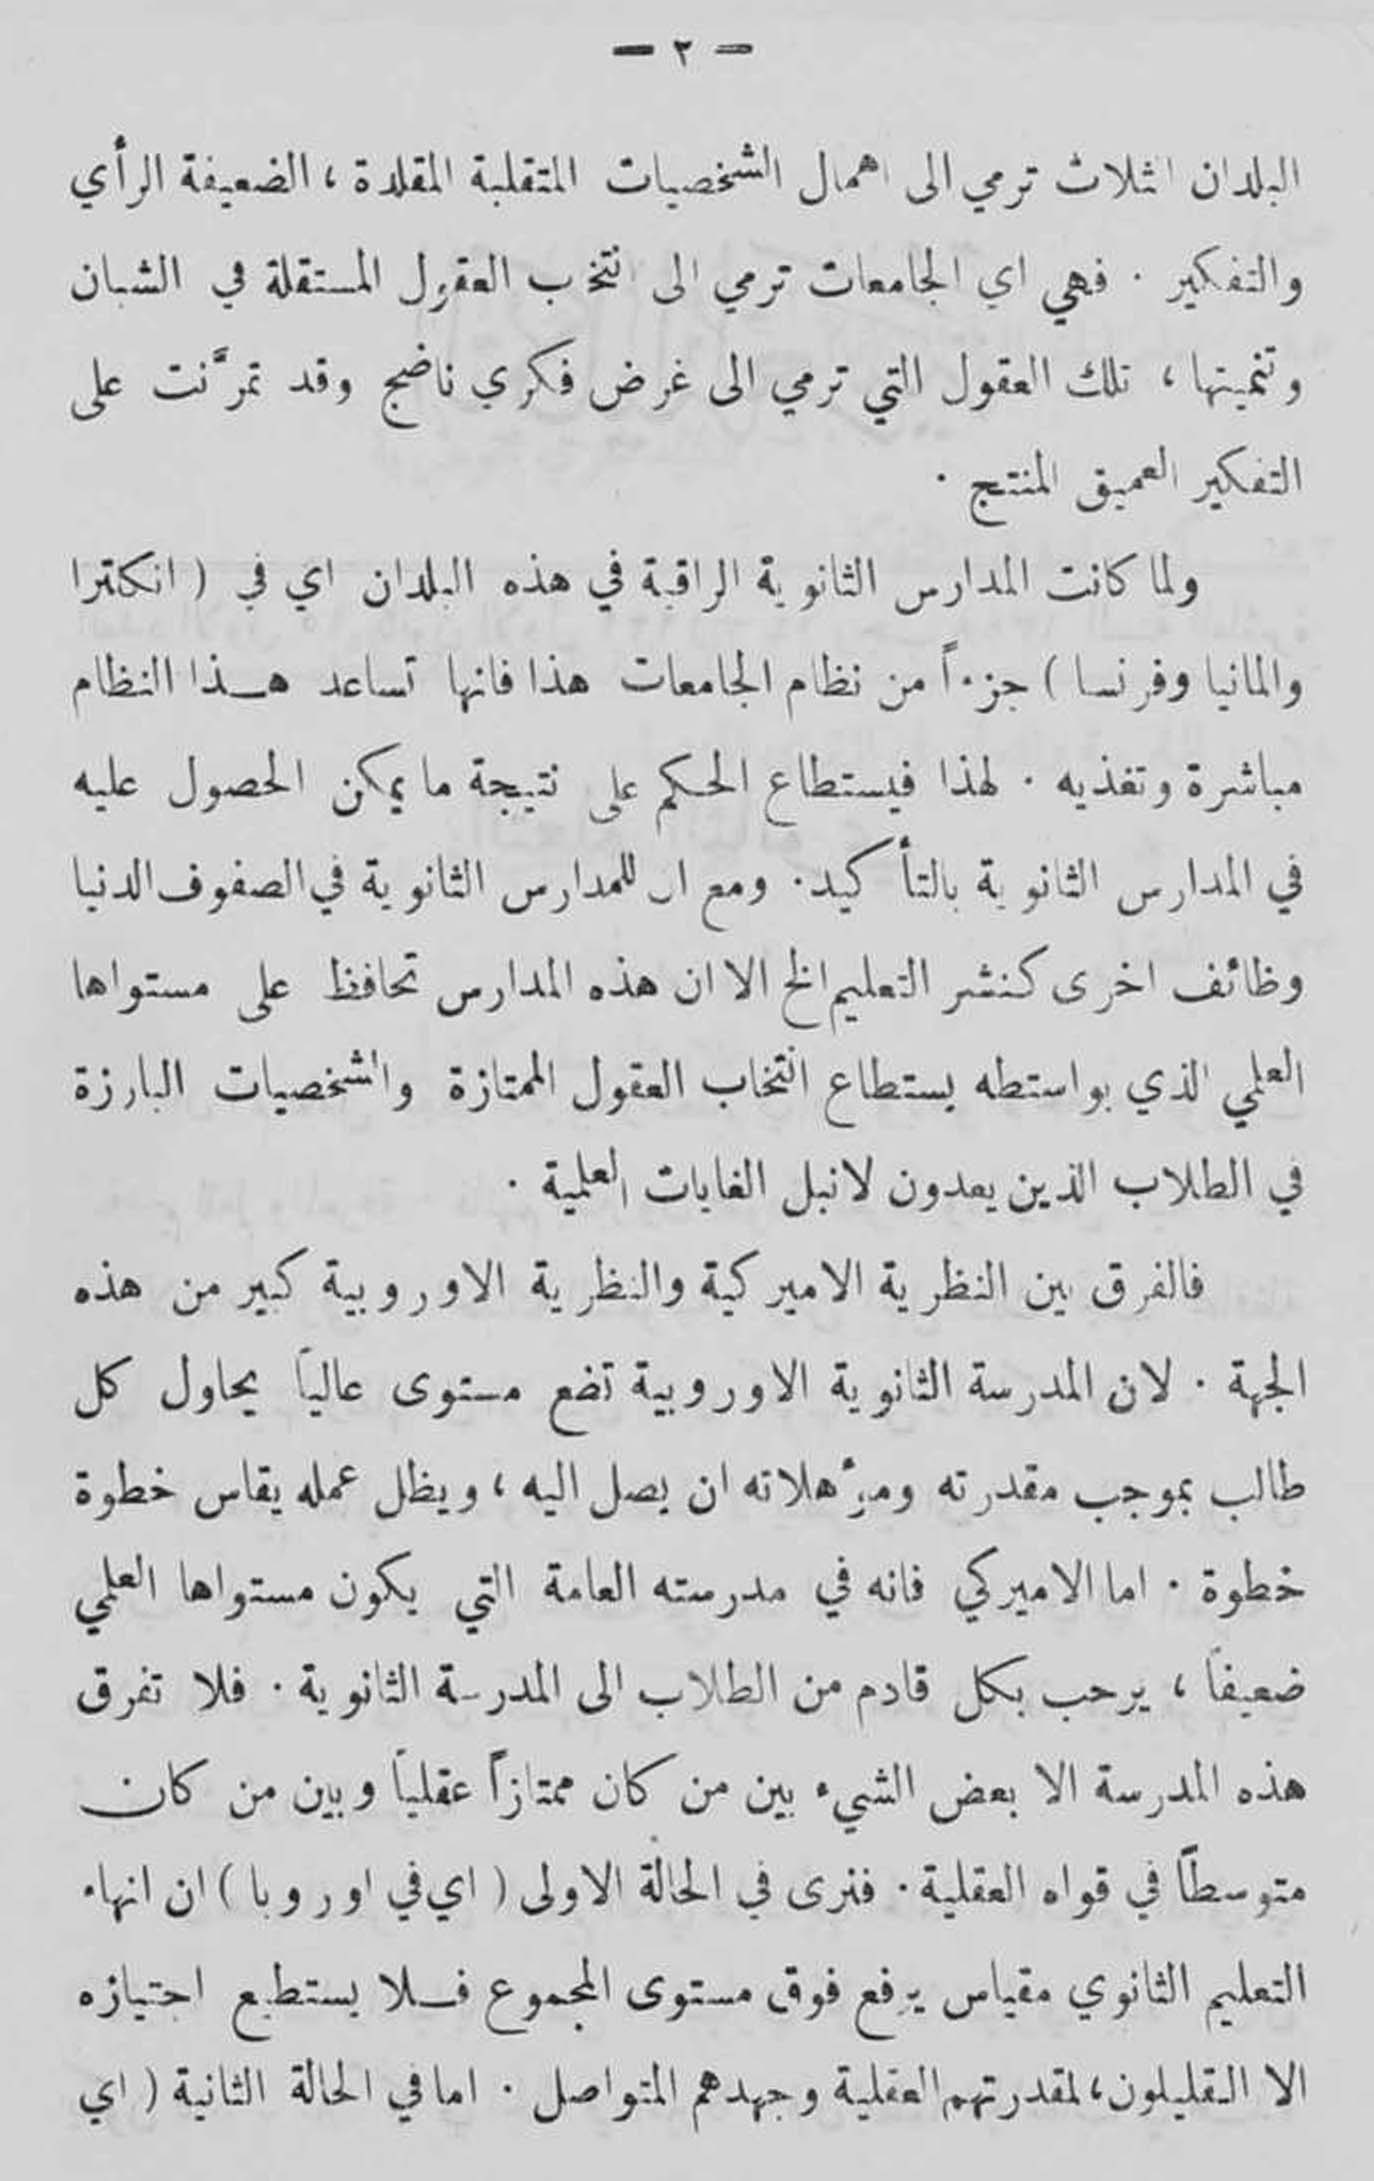 — ٢ —
البلدان الثلاث ترمي الى اهمال الشخصيات المتقلبة المقلدة ، الضعيفة الرأي
والتفكير . فهي اي الجامعات ترمي الى انتخاب العقول المستقلة في الشبان
وتنميتها ، تلك العقول التي ترمي الى غرض فكري ناضج وقد تمرَّنت على
التفكير العميق المنتج .
ولما كانت المدارس الثانوية الراقية في هذه البلدان اي في ( انكلترا
والمانيا وفرنسا ) جزءاً من نظام الجامعات هذا فانها تساعد هـذا النظام
مباشرة وتغذيه . لهذا فيستطاع الحكم على نتيجة ما يمكن الحصول عليه
في المدارس الثانوية بالتأكيد . ومع ان للمدارس الثانوية في الصفوف الدنيا
وظائف اخرى كنشر التعليم الخ الا ان هذه المدارس تحافظ على مستواها
العلمي الذي بواستطه يستطاع انتخاب العقول الممتازة والشخصيات البارزة
في الطلاب الذين يعدون لانبل الغايات العلمية .
فالفرق بين النظرية الاميركية والنظرية الاوروبية كبير من هذه
الجهة . لان المدرسة الثانوية الاوروبية تضع مستوى عالياً يحاول كل
طالب بموجب مقدرته ومؤهلاته ان يصل اليه ، ويظل عمله يقاس خطوة
خطوة . اما الاميركي فانه في مدرسته العامة التي يكون مستواها العلمي
ضعيفاً ، يرحب بكل قادم من الطلاب الى المدرسة الثانوية . فلا تفرق
هذه المدرسة الا بعض الشيء بين من كان ممتازاً عقلياً وبين من كان
متوسطاً في قواه العقلية . فنرى في الحالة الاولى ( اي في اوروبا ) ان انهاء
التعليم الثانوي مقياس يرفع فوق مستوى المجموع فـلا يستطيع اجتيازه
الا القليلون ، لمقدرتهم العقلية وجهدهم المتواصل . اما في الحالة الثانية ( اي